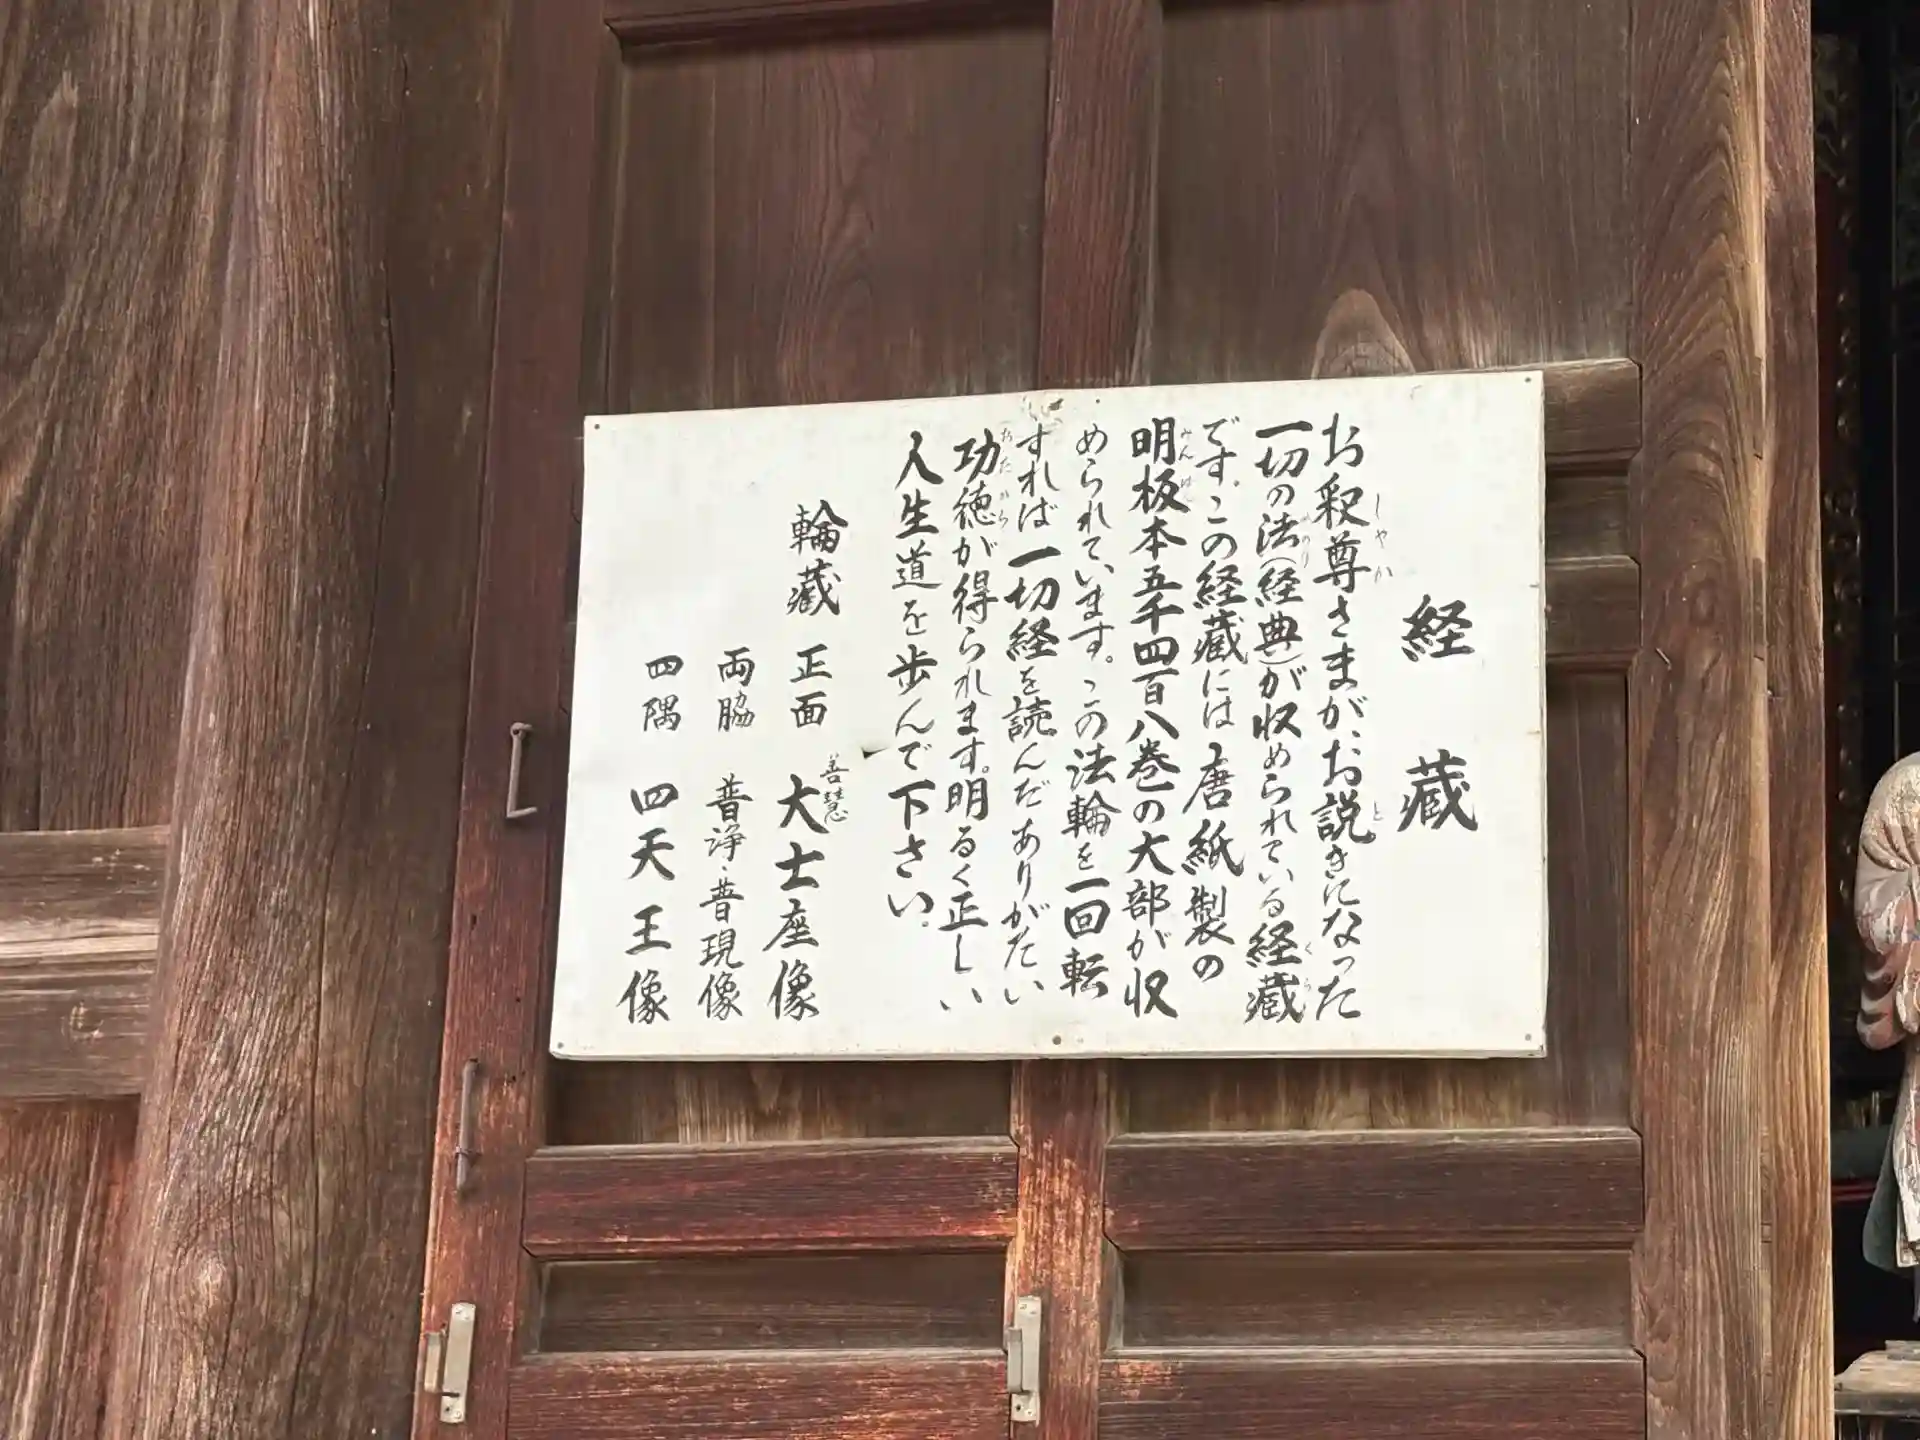 経蔵
お釈尊さまが、お説きになった
一切の法(経典)が収められている経蔵
です。この経蔵には唐紙製の
明板本五千四百八巻の大部が収
められています。この法輪を一回転
すれば一切経を読んだありがたい
功徳が得られます。明るく正しい
人生道を歩んで下さい。
輪蔵 正面 善慧大士座像
両脇 普浄・普現像
四隅 四天王像